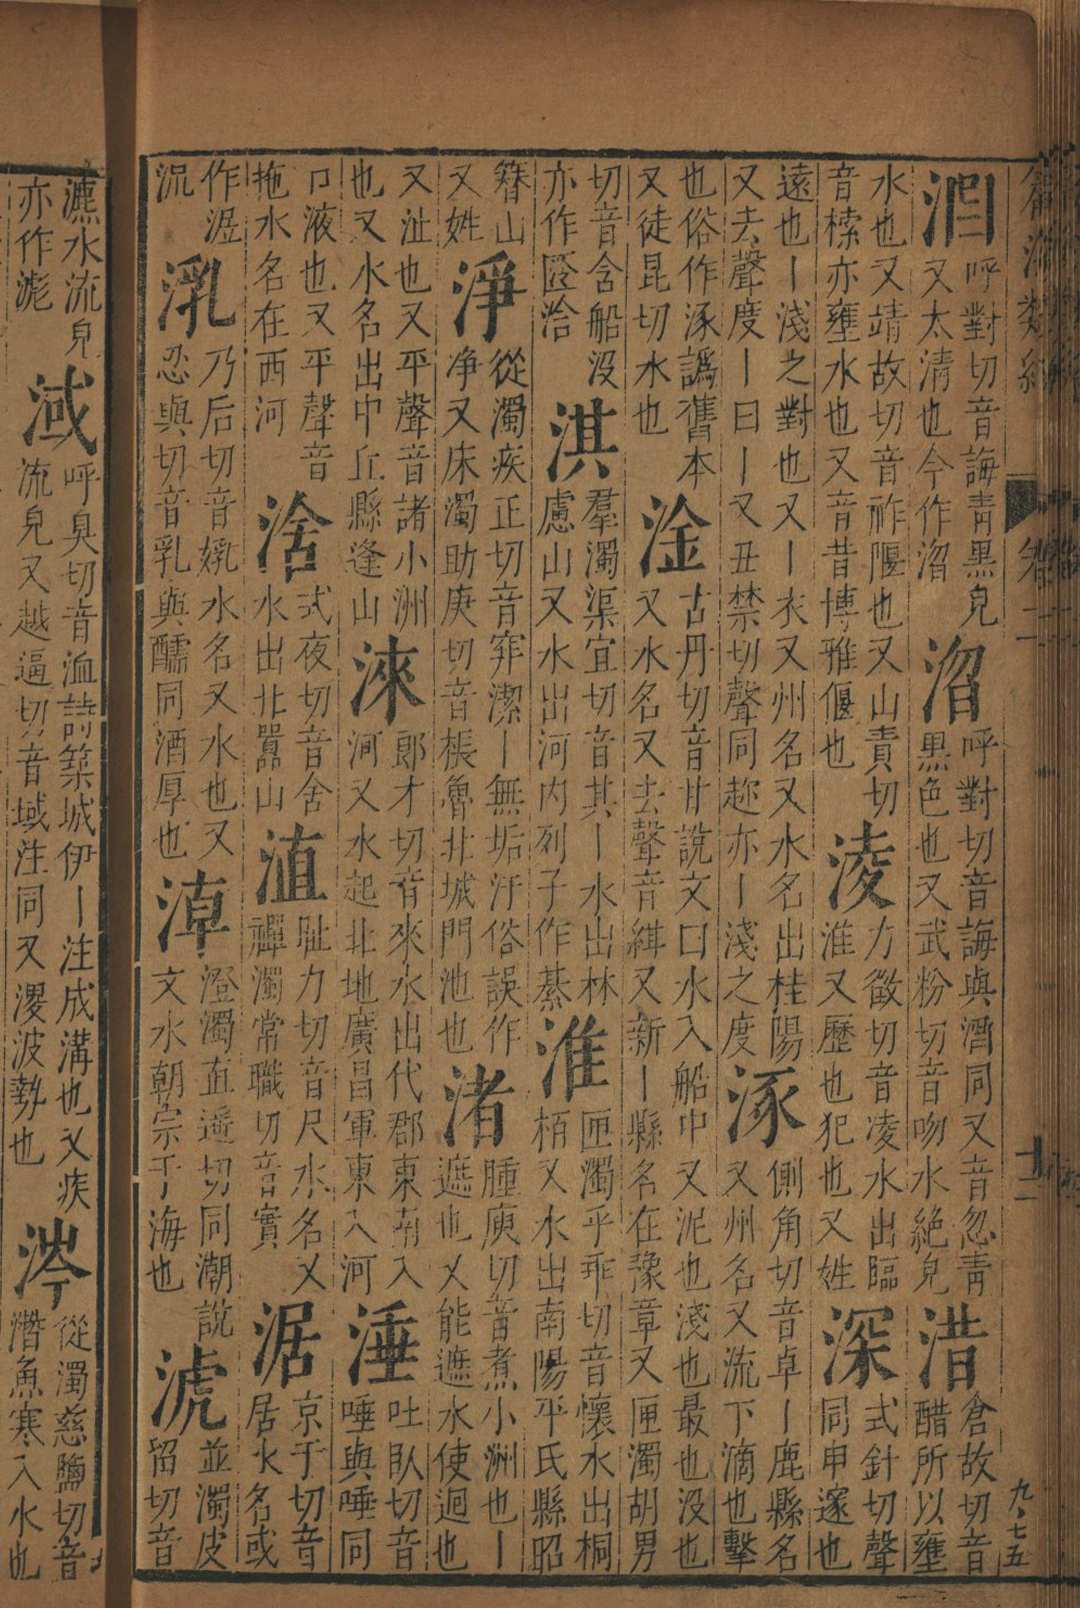 𣶒呼對切音誨靑黑皃又太清也今作淴
淴呼對切音誨與潣同又音忽靑黑色也又武粉切音吻水絶皃
浩倉故切音醋所以壅水也又靖故切音祚隁也又山責切音㯏亦壅水也又音昔博雅偃也
淩力徵切音凌水出臨淮又歷也犯也又姓
深式針切聲同申邃也遠也丨淺之對也又丨衣又州名又水名出桂陽又去聲度丨曰丨又丑禁切聲同趂亦丨淺之度
涿側角切音卓丨鹿縣名又州名又流下滴也擊也俗作涿譌舊本
淦古丹切音甘說文曰水入船中又泥也淺也最也没也又徒昆切水也又水名又去聲音紺又新丨縣名在豫章又匣濁胡男切音含船没亦作𠥄浛
淇羣濁渠宜切音其丨水出林慮山又水出河内列子作綦
淮匣濁乎乖切音懷水出桐栢又水出南陽平氏縣昭簪山又姓
淨從濁疾正切音穽潔丨無垢汙俗誤作净又床濁助庚切音棖魯北城門池也
渚腫庾切音煮小洲也丨遮也又能遮水使迴也又沚也又平聲音諸小洲也又水名出中丘縣逢山
淶郎才切音來水出代郡東南入河又水起北地廣昌軍東入河
涶吐臥切音唾與唾同口液也又平聲音拖水名在西河
涻式夜切音舍水出北嚻山
淔恥力切音尺水名又禪濁常職切音實
涺京于切音居水名或作淲況
㳶乃后切音㝅水名又水也又忍與切音乳與醹同酒厚也
淖澄濁直遥切同潮說文水朝宗于海也
淲並濁皮留切音瀌水流皃亦作滮
淢呼臭切音洫詩築城伊丨注成溝也又疾流皃又越逼切音域注同又溭波勢也
涔從濁慈鹽切音潛魚寒入水也